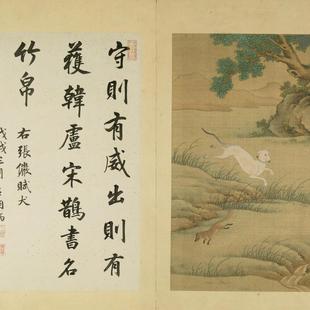 守則有威出則有
獲韓盧宋鵲書名
竹帛
右張儼賦犬
戊戌三月